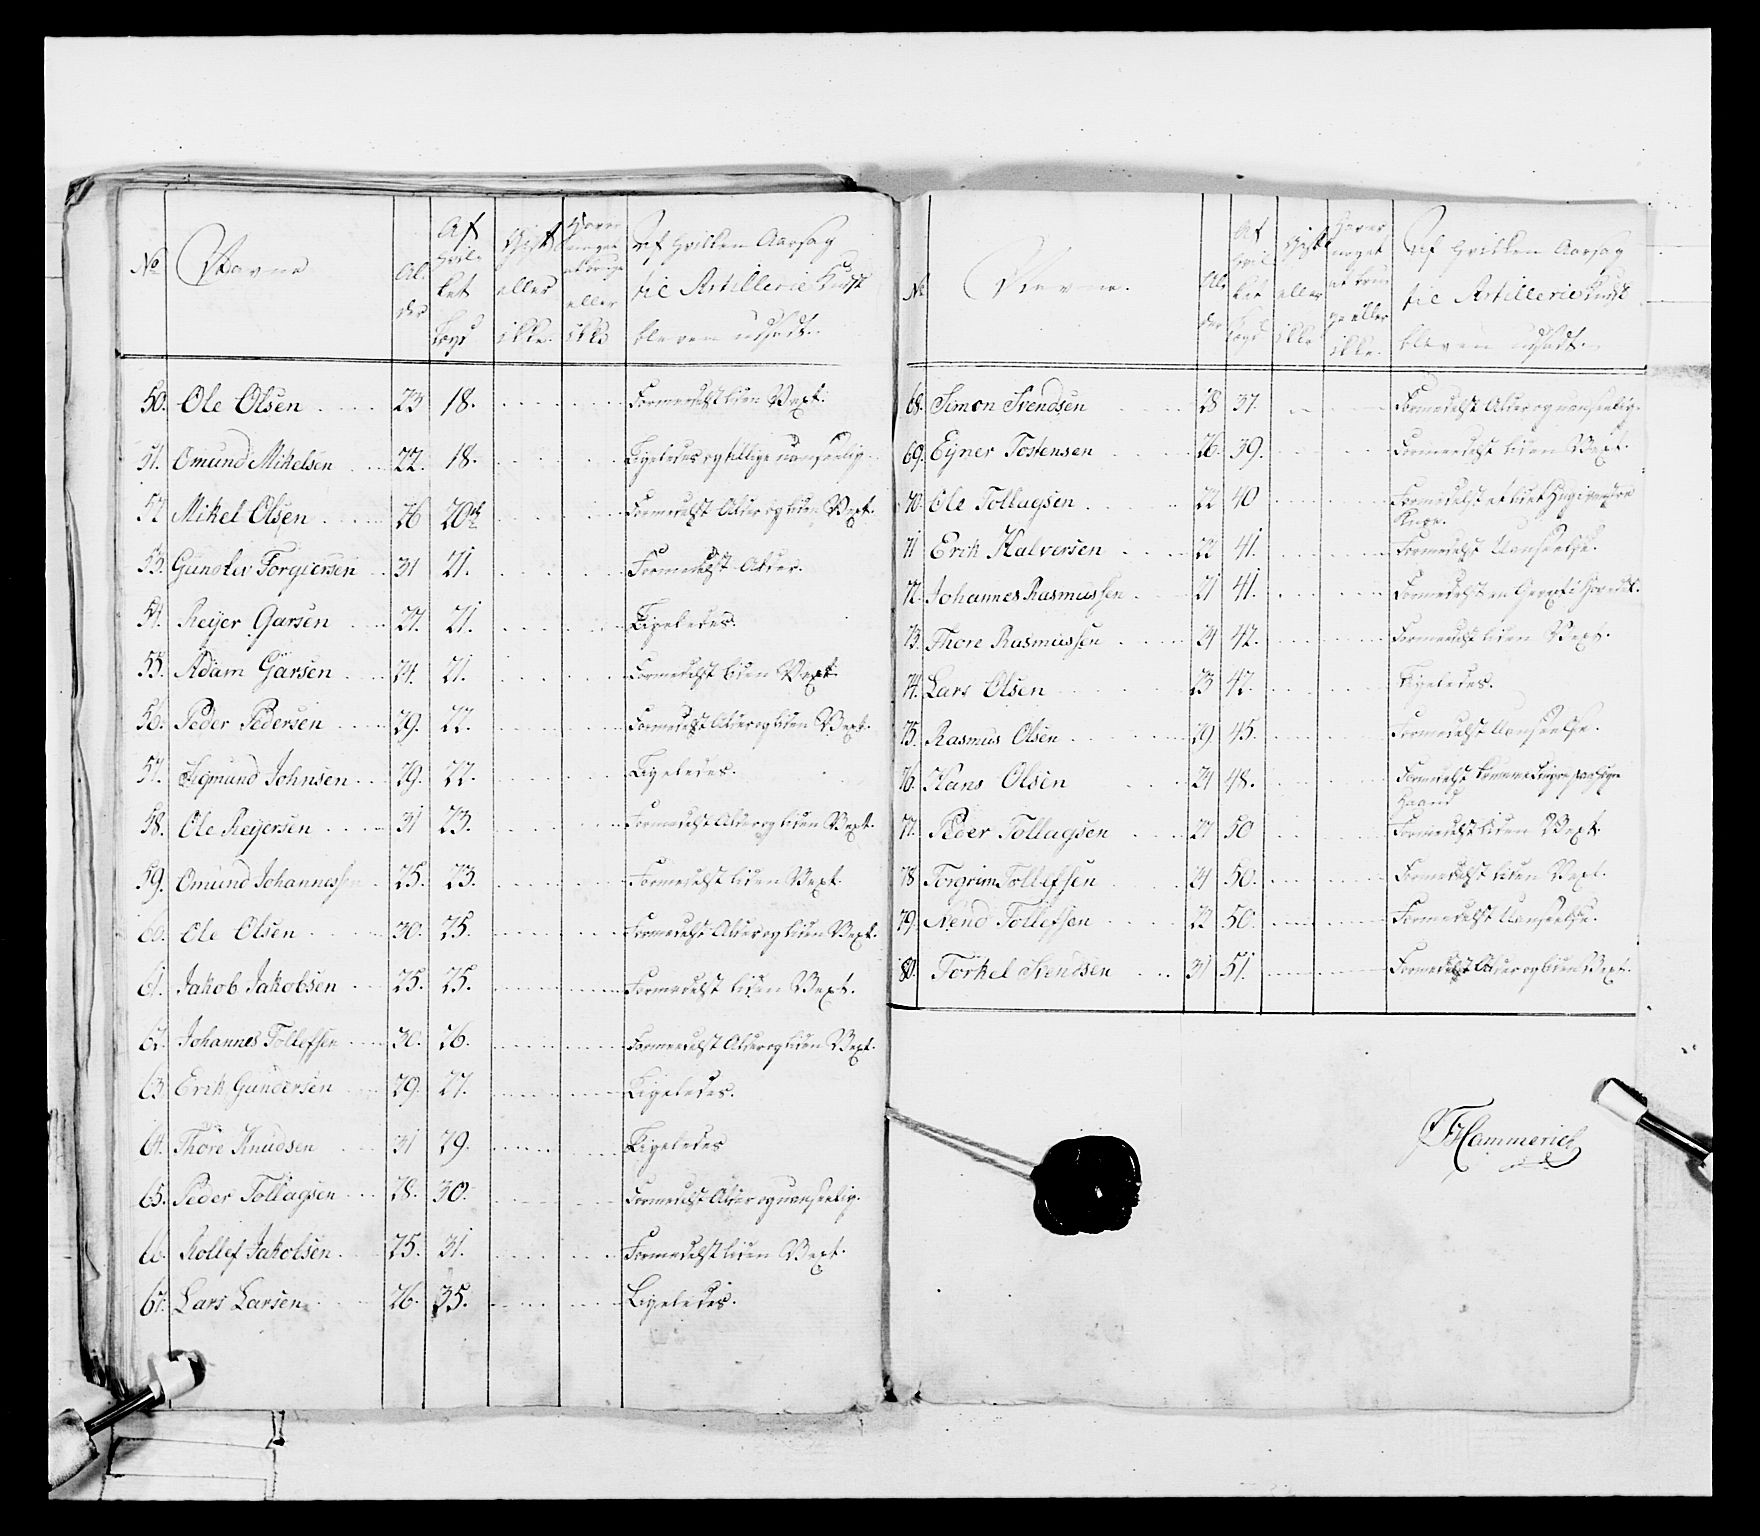 No
Navne
Al-
der
Af
hvil-
ket
Lægd
Gift
eller
ikke.
eller
ikke
Af hvilken Aarsag
til Artillerie Kudsk
bleven udsadt.
50. Ole Olsen 23 18. Formedelst liden Vext.
51. Omund Mikelsen 22. 18. Ligeledes og tillige uanseelig
52 Mikel Olsen 26 20de Formedelst Alder og liden Vext.
53. Gunolev Torgiersen 31 21. Formedelst Alder.
54. Reijer Garsen 27. 21. Ligeledes.
55. Adam Garsen 24. 21. Formedelst liden Vext.
56. Peder Pedersen 29. 22. Formedelst Alder og liden Vext.
57. Sigmund Johnsen 29. 22. Ligeledes.
58. Ole Reijersen 31 23. Formedelst Alder og liden Vext.
59. Omund Johannessen 25. 23. Formedelst liden Vext.
60. Ole Olsen 30. 25. Formedelst Alder og liden Vext.
61. Jakob Jakobsen 25. 25. Formedelst liden Vext.
62. Johannes Tollefsen 30. 26. Formedelst Alder og liden Vext.
63. Erik Gundersen 29. 27. Ligeledes.
64. Thore Knudsen 31 29. Ligeledes
65. Peder Tollagsen 28. 30. Formedelst Alder og uanseelig.
66. Rollef Jakobsen 25. 31. Formedelst liden Vext.
67. Lars Larsen 26. 35. Ligeledes.
No
Navne.
Al-
der
Af
hvil-
ket
Lægd
Gift
eller
ikke
noget
eller
ikke.
Af hvilken Aarsag
til Artillerie Kudsk
bleven udsadt.
68. Simon Svendsen 28 37. Formedelst Alder og uanseelig.
69. Ejner Tostensen 26. 39. Formedelst liden Vext.
70. Ole Tollagsen 22 40 Formedelst et
Knæe.
71 Erik Halversen 22 41. Formedelst Uanseelse.
72. Johannes Rasmussen 21 41. Formedelst en
73. Thore Rasmussen 24 42. Formedelst liden Vext.
74. Lars Olsen 23 42. Ligeledes.
75. Rasmus Olsen 29 45. Formedelst Uanseelse.
76. Hans Olsen 24 48. Formedelst
Haand
77. Peder Tollagsen 27 50 Formedelst liden Vext.
78 Torgrim Tollefsen 24 50. Formedelst liden Vext.
79. Nend Tollefsen 22 50. Formedelst Uanseelse.
80. Torkel Svendsen 31 51. Formedelst Alder og liden Vext.
Hammerich